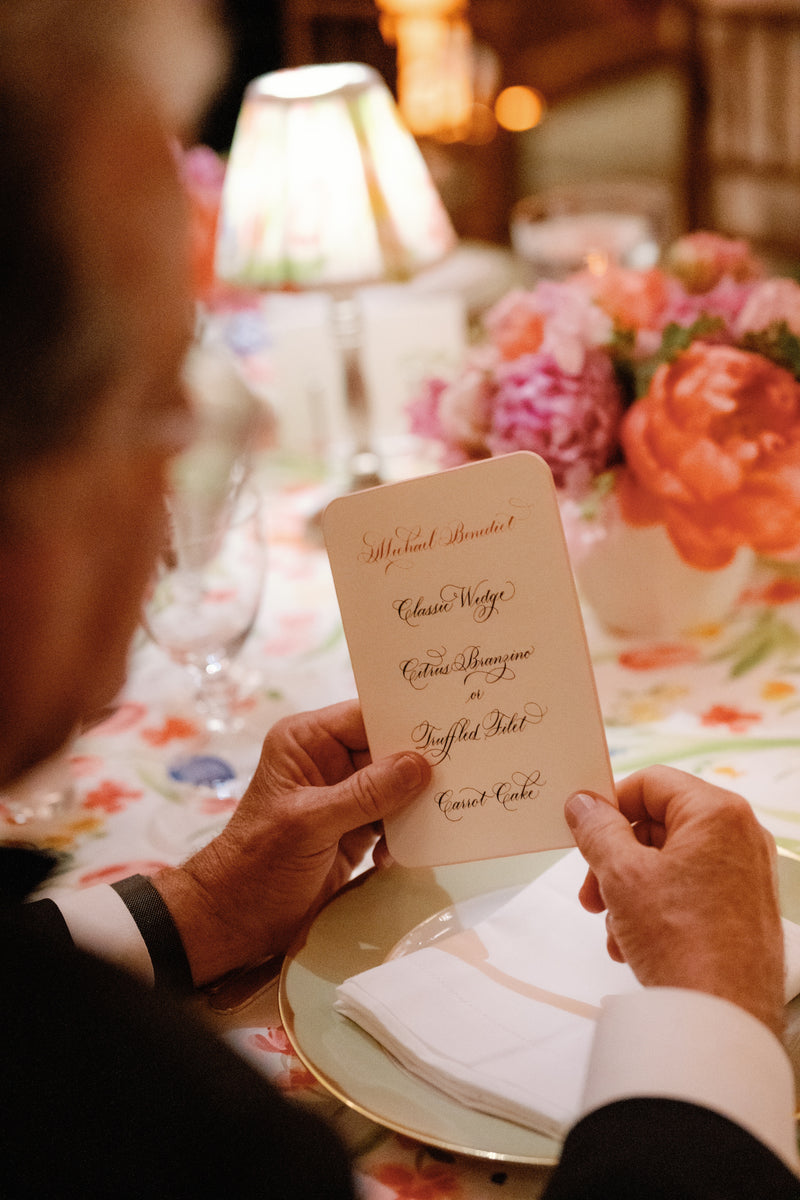 Michael Benedict
Classic Wedge
Citrus Branzino
or
Truffled Filet
Carrot Cake